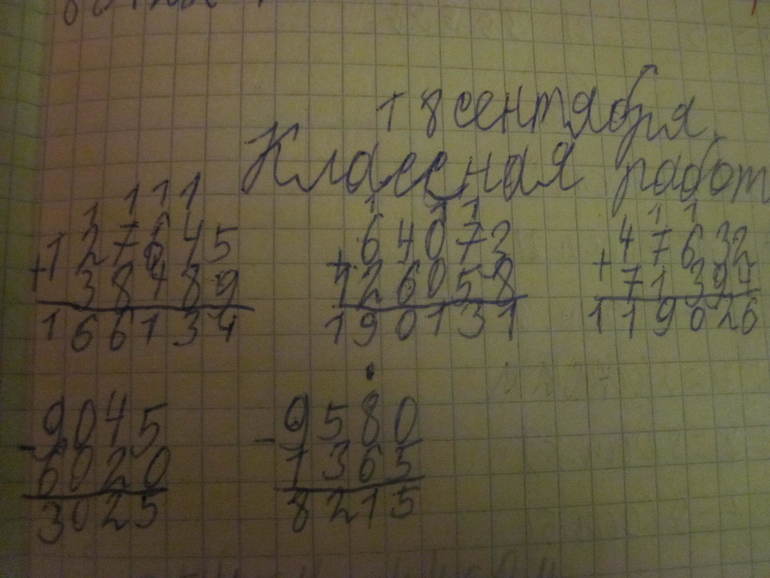 18 сентября.
Классная работ
1 1 1 1
1 1 1
1 1
127645
+ 38489
166134
64073
+ 126058
190131
47632
+ 71394
119026
9045
- 6020
3025
9580
- 1365
8215